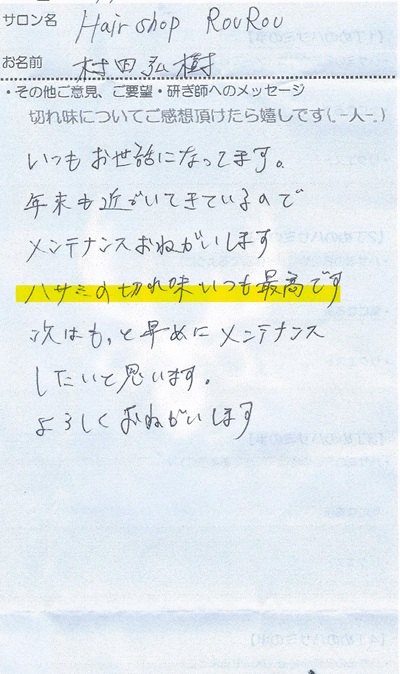 サロン名 Hair shop RouRou
お名前 村田弘樹
・その他ご意見、ご要望・研ぎ師へのメッセージ
切れ味についてご感想頂けたら嬉しです(.-人-.)
いつもお世話になってます。
年末も近ずいてきているので
メンテナンスおねがいします
ハサミの切れ味いつも最高です
次はもっと早めにメンテナンス
したいと思います。
よろしくおねがいします